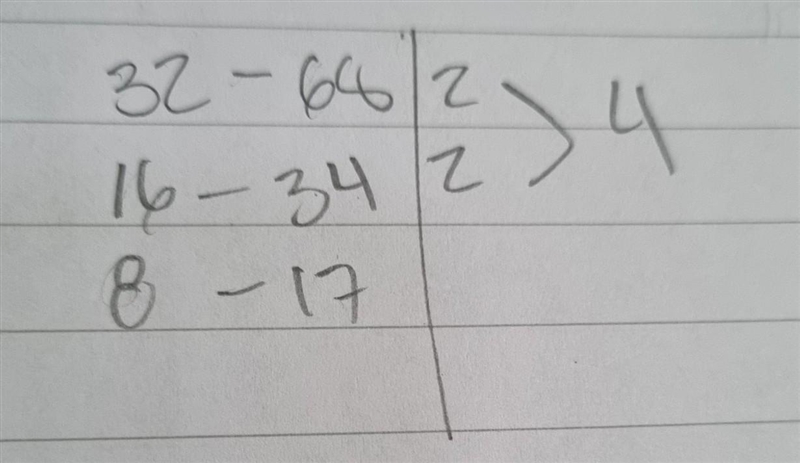 32 - 68 | 2
16 - 34 | 2 > 4
8 - 17 |